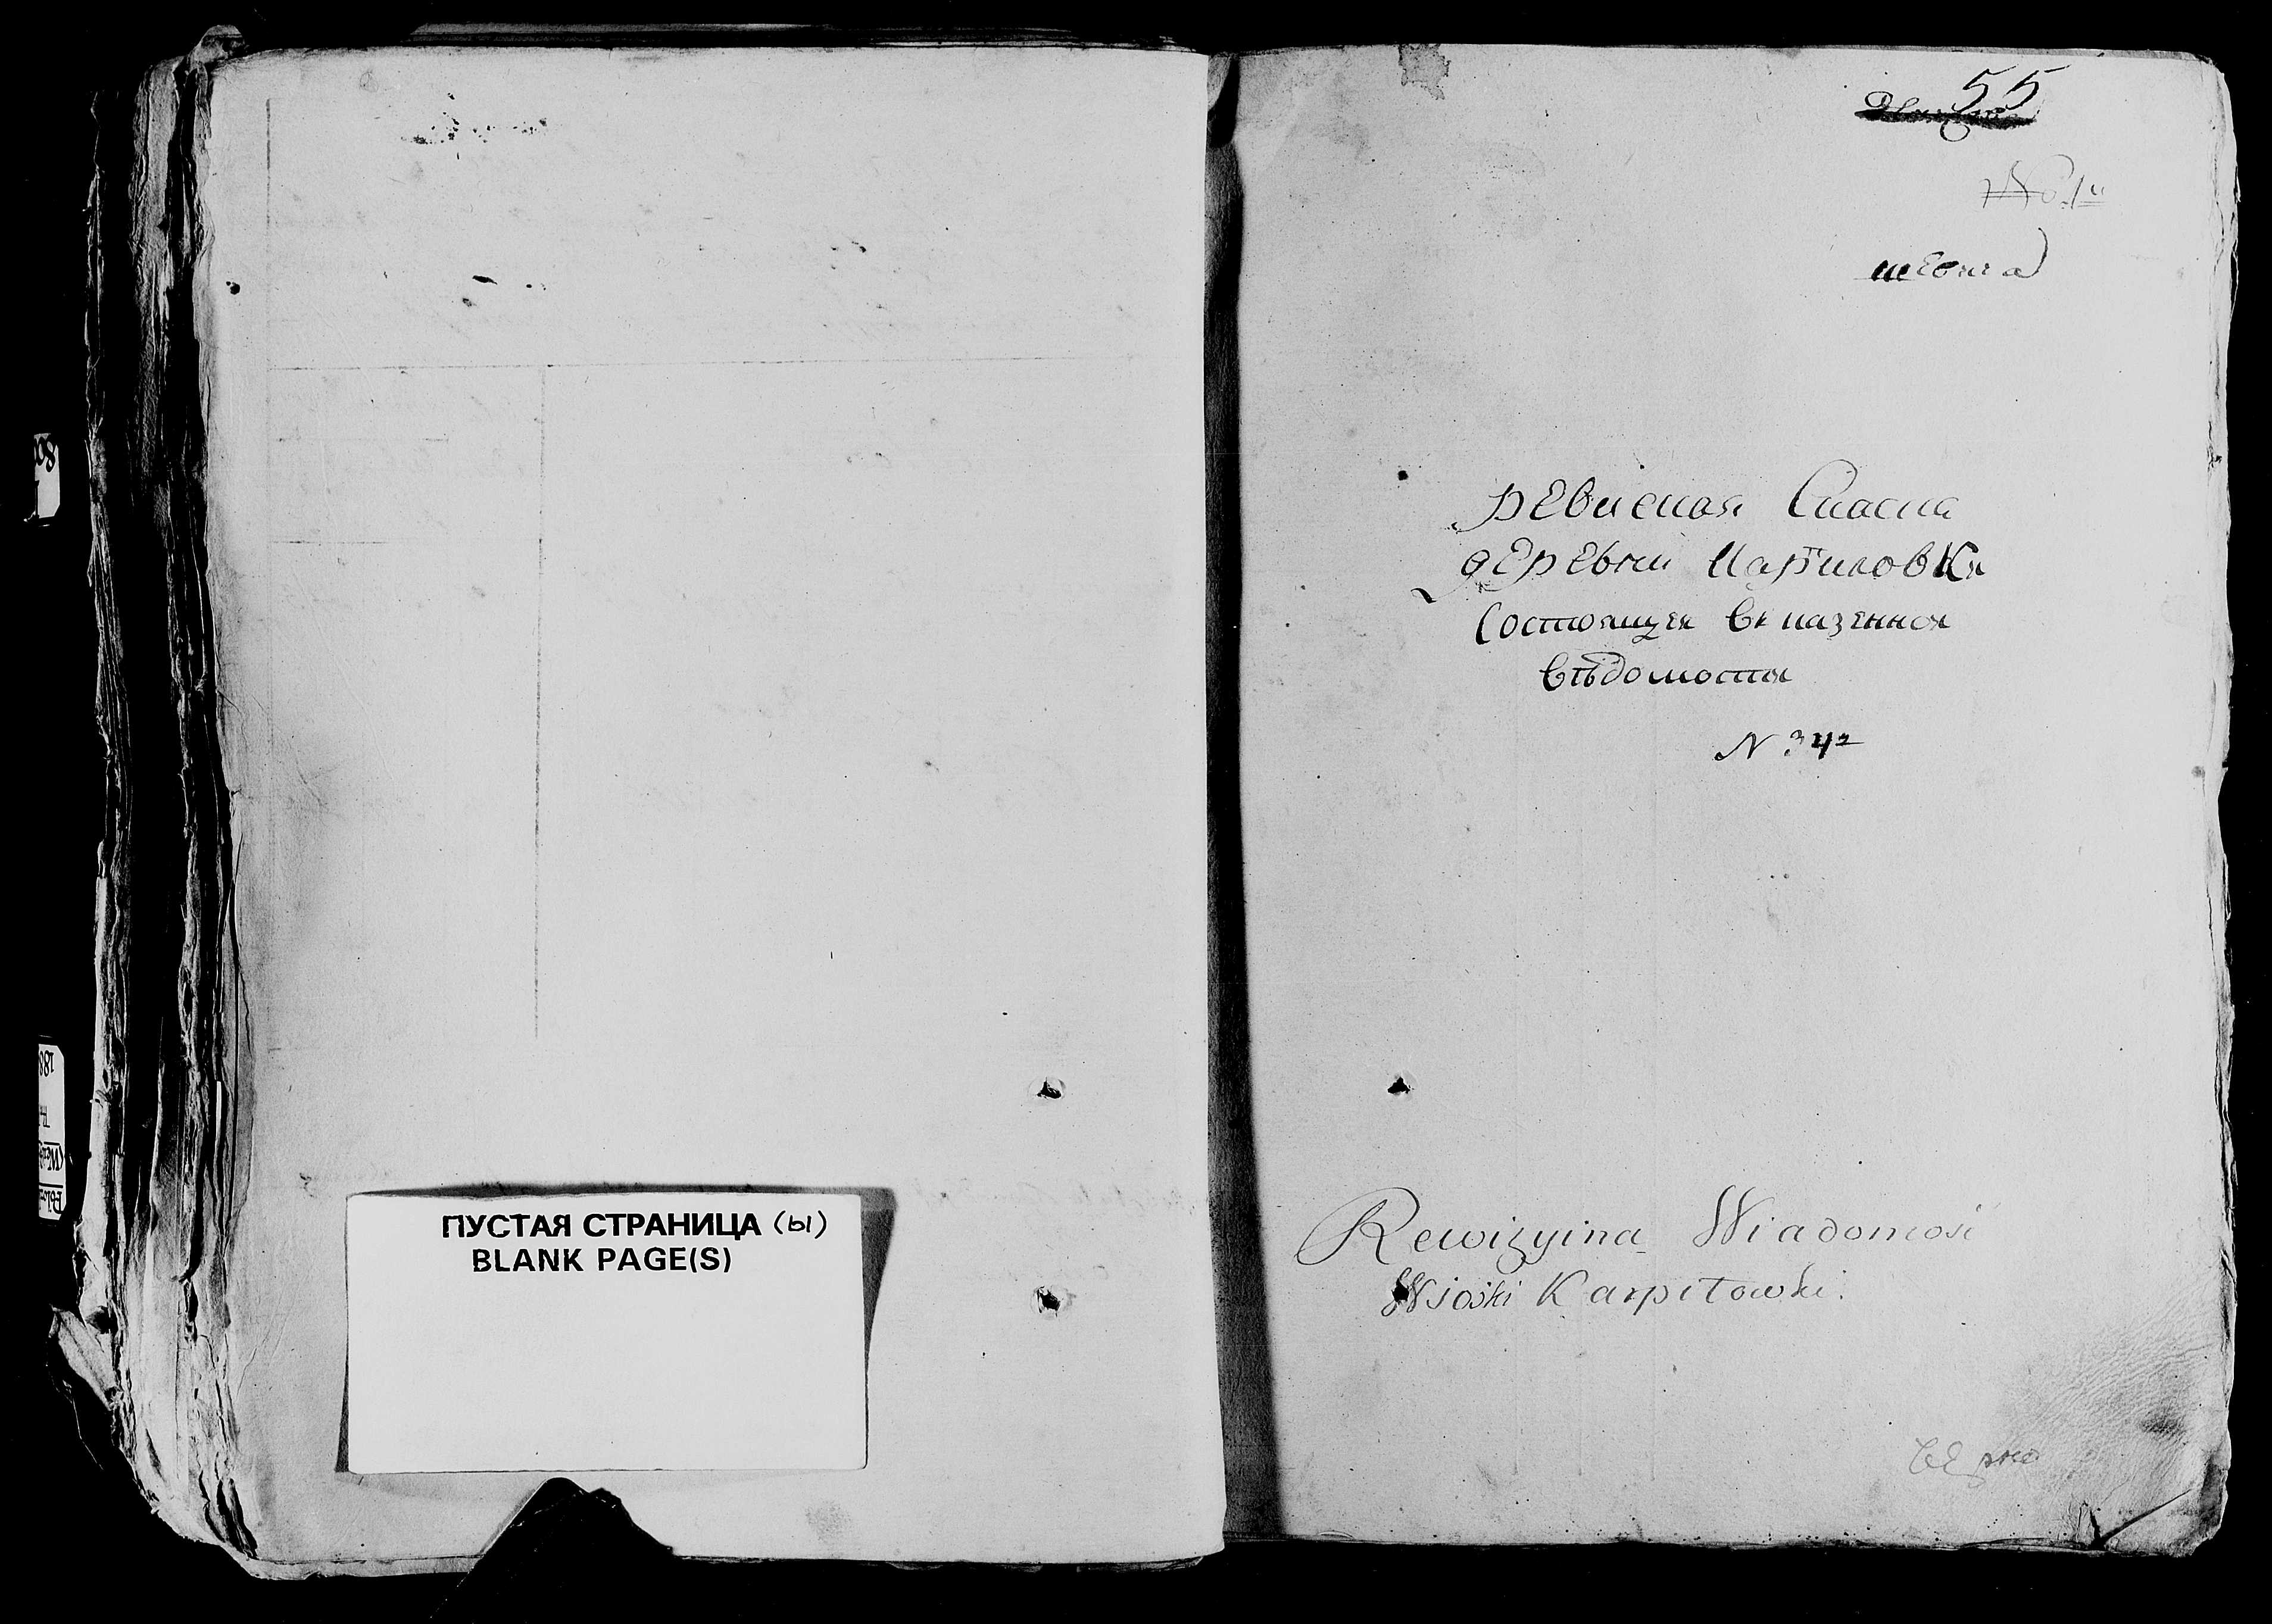 ПУСТАЯ СТРАНИЦА (ы)
BLANK PAGE(S)
55
№ 1й
ревиская Скаска
деревни Карпиловки
состоящея вк казенноя
вѣдомости
N 342
Rewizyina Wiadomosć
Wsioski Karpiłowki.
верно